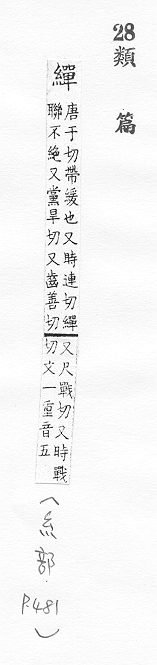 28類篇
繟
唐于切帶緩也又時連切繟
聯不絶又黨旱切又齒善切
又尺戰切又時戰
切文一重音五
(糸部.P.481)